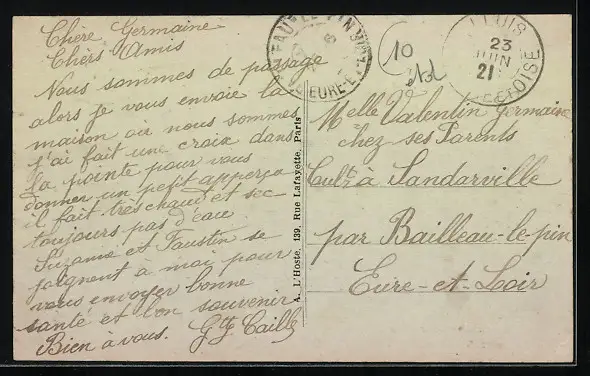 Chère Germaine
Chers Amis
Nous sommes de passage
alors je vous envoie la
maison où nous sommes
j'ai fait une croix dans
la pointe pour vous
donner un petit apperçu
il fait très chaud et sec
toujours pas d'eau
Suzanne et Faustin se
joignent à moi pour
vous envoyer bonne
santé et bon souvenir
Bien a vous. Gtte Caille
A. L'Hoste, 139, Rue Lafayette, Paris
BAILLEAU-LE-PIN
EURE-E
10
23
JUIN
21
Melle Valentin germaine
chez ses Parents
Cultr à Sandarville
par Bailleau-le-pin
Eure-et-Loir